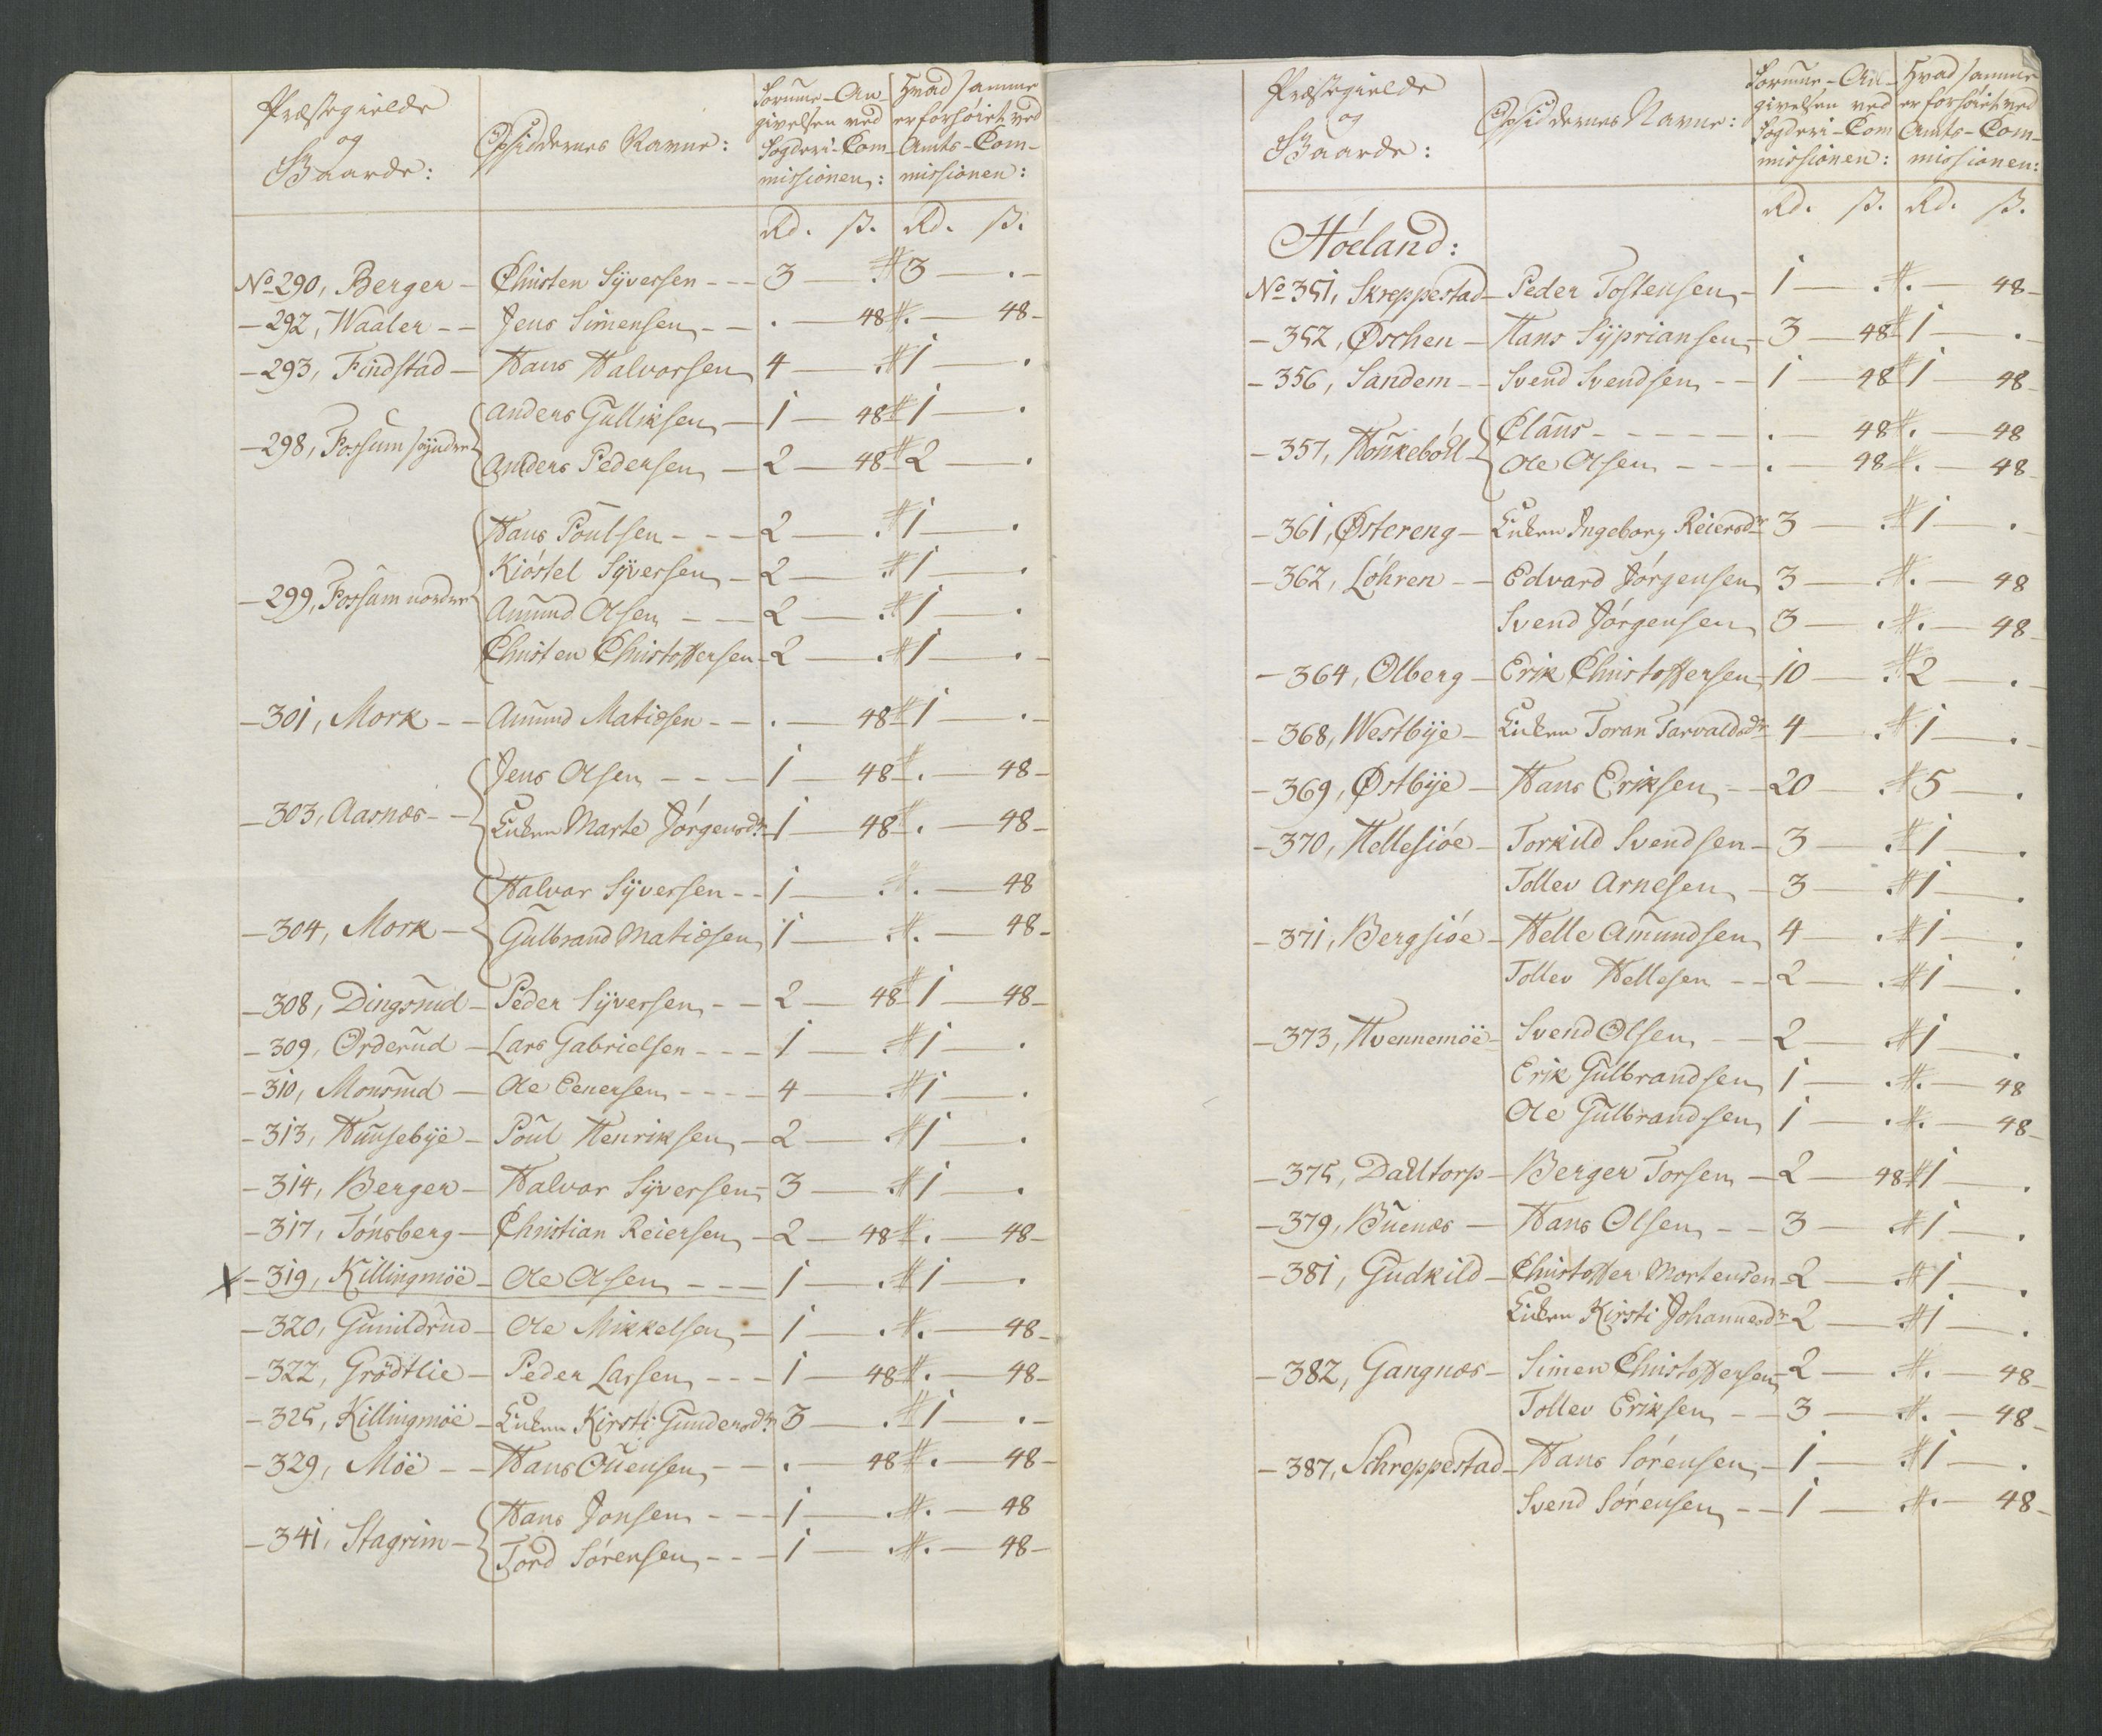 Præstegielde
og
Gaarde:
Opsiddernes Navne:
Summe-An-
givelsen ved
Fogderi-Com-
missionen:
Hvad samme
er forhøiet ved
Amts-Com-
missionen:
Rd. ß. Rd. ß.
No 290, Berger - Christen Syversen - - - 3 — . # 3 — . -
- 292, Waaler - - Jens Simensen - - . — 48 # . — 48 -
- 293, Findstad - Hans Halvorsen 4 — . # 1 — .
- 298, Fossum søndre { Anders Gulliksen - 1 — 48 # 1 — .
Anders Pedersen - 2 — 48 # 2 — .
- 299, Fossum nordre { Hans Poulsen - - - 2 — . # 1 — .
Kiøstel Syversen - 2 — . # 1 — .
Amund Olsen - - - 2 — . # 1 — .
Christen Christoffersen - 2 — . # 1 — . -
- 301, Mork - - Amund Matiesen - - . — 48 # 1 — . -
- 303, Aasnæs - - { Jens Olsen - - - 1 — 48 # . — 48 -
Enken Marte Jørgensdr - 1 — 48 # . — 48 -
- 304, Mork - { Halvor Syversen - - 1 — . # . — 48
Gulbrand Matiesen 1 — . # . — 48 -
- 308, Dingsrud - Peder Syversen - - 2 — 48 # 1 — 48 -
- 309, Orderud - Lars Gabrielsen - - - 1 — . # 1 — .
- 310, Monsrud - Ole Evensen - - - - 4 — . # 1 — .
- 313, Huusebye - Poul Henriksen - 2 — . # 1 — .
- 314, Berger - Halvor Syversen - 3 — . # 1 — .
- 317, Tønsberg - Christian Reiersen - 2 — 48 # . — 48 -
X - 319, Killingmöe - Ole Olsen - - - 1 — . # 1 — .
- 320, Gunildrud - Ole Mikkelsen - 1 — . # . — 48 -
- 322, Grödtlie - Peder Larsen - - - 1 — 48 # . — 48 -
- 325, Killingmöe - Enken Kirsti Gundersdr 3 — . # 1 — . -
- 329, Möe - - Hans Ouensen - - . — 48 # . — 48 -
- 341, Stagrim - { Hans Jonsen - - - 1 — . # . — 48
Tord Sørensen - - - 1 — . # . — 48 -
Præstegielde
og
Gaarde:
Opsiddernes Navne:
Summe-An-
givelsen ved
Fogderi-Com
missionen:
Hvad samme
er forhøiet ved
Amts-Com-
missionen:
Rd. ß. Rd. ß.
Høeland:
No 351, Skreppestad - Peder Tostensen - 1 — . # . — 48 -
- 352, Øschen - Hans Sypriansen - 3 — 48 # 1 — . -
- 356, Sandem - - Svend Svendsen - - 1 — 48 # 1 — 48 -
- 357, Honkeböl - { Claus - - - - - . — 48 # . — 48
Ole Olsen - - - . — 48 # . — 48 -
- 361, Østereng - Enken Ingeborg Reiersdr 3 — . # 1 — . -
- 362, Löhren - - Edvard Jørgensen 3 — . # . — 48
Svend Jørgensen 3 — . # . — 48 -
- 364, Olberg - Erik Christoffersen - 10 — . # 2 — . -
- 368, Westbye - Enken Toran Tarvaldsdr 4 — . # 1 — . -
- 369, Østbye - Hans Eriksen - - 20 — . # 5 — .
- 370, Hellesiøe - Torkild Svendsen - 3 — . # 1 — .
Tollev Arnesen - 3 — . # 1 — .
- 371, Bergsiøe - Helle Amundsen 4 — . # 1 — .
Tollev Hellesen - - 2 — . # 1 — .
- 373, Hvennemöe - Svend Olsen - - 2 — . # 1 — .
Erik Gulbrandsen 1 — . # . — 48
Ole Gulbrandsen 1 — . # . — 48 -
- 375, Daltorp - Berger Torsen - 2 — 48 # 1 — .
- 379, Buenæs - Hans Olsen - - 3 — . # 1 — .
- 381, Gudkild - Christoffer Mortensen - 2 — . # 1 — .
Enken Kirsti Johannesdr 2 — . # 1 — .
- 382, Gangnæs - Simen Christoffersen - 2 — . # . — 48 -
Tollev Eriksen - - 3 — . # . — 48 -
- 387, Schreppestad - Hans Sørensen - 1 — . # 1 — .
Svend Sørensen - - 1 — . # . — 48 -